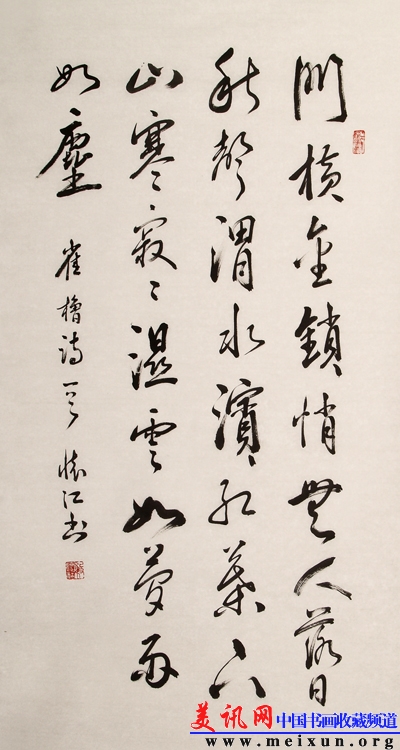 門横金鎖悄無人落日
秋聲渭水濱紅葉下
山寒〻寂〻濕雲如夢雨
如塵
崔櫓诗一首 懷江书
美讯网 中国书画收藏频道
www.meixun.org